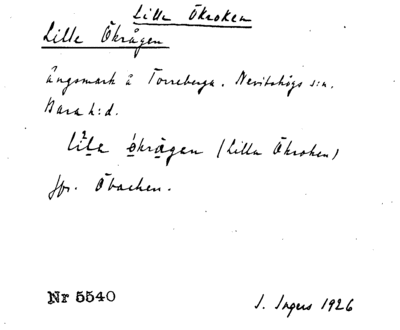 Lilla Ökroken
Lille Ökrågen
ängsmark å Torreberga. Nevitshögs s:n.
Bara h:d.
lila økrågen (Lilla Ökroken)
jfr. Öbacken.
Nr 5540
I. Ingers 1926